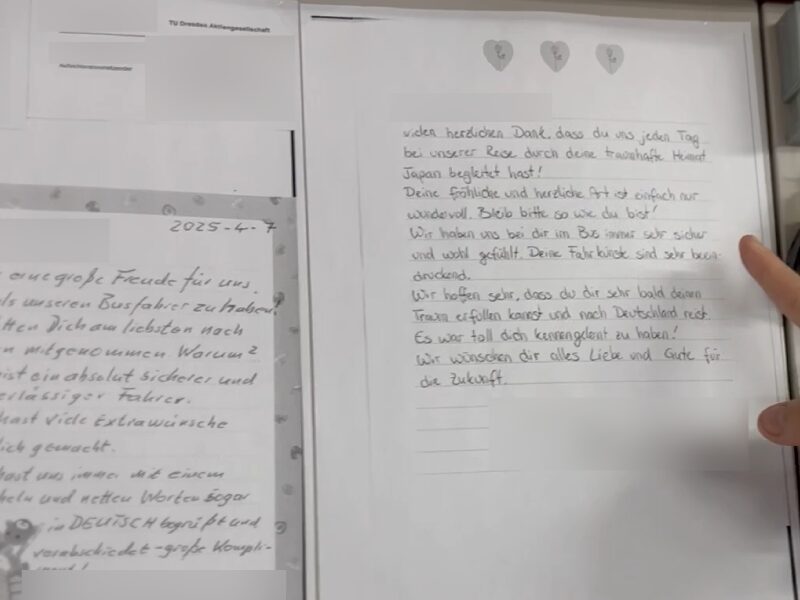 TU Dresden Aktiengesellschaft
Aufsichtsratsvorsitzender
2025-4-7
eine große Freude für uns,
als unseren Busfahrer zu haben!
tten Dich am liebsten nach
mitgenommen. Warum?
ist ein absolut sicherer und
erlässiger Fahrer.
hast viele Extrawünsche
lich gemacht.
hast uns immer mit einem
heln und netten Worten sogar
in DEUTSCH begrüßt und
verabschiedet - große Kompli-
vielen herzlichen Dank, dass du uns jeden Tag
bei unserer Reise durch deine traumhafte Heimat
Japan begleitet hast!
Deine fröhliche und herzliche Art ist einfach nur
wundervoll. Bleib bitte so wie du bist!
Wir haben uns bei dir im Bus immer sehr sicher
und wohl gefühlt. Deine Fahrkünste sind sehr beein-
druckend.
Wir hoffen sehr, dass du dir sehr bald deinen
Traum erfüllen kannst und nach Deutschland reist.
Es war toll dich kennengelernt zu haben!
Wir wünschen dir alles Liebe und Gute für
die Zukunft.